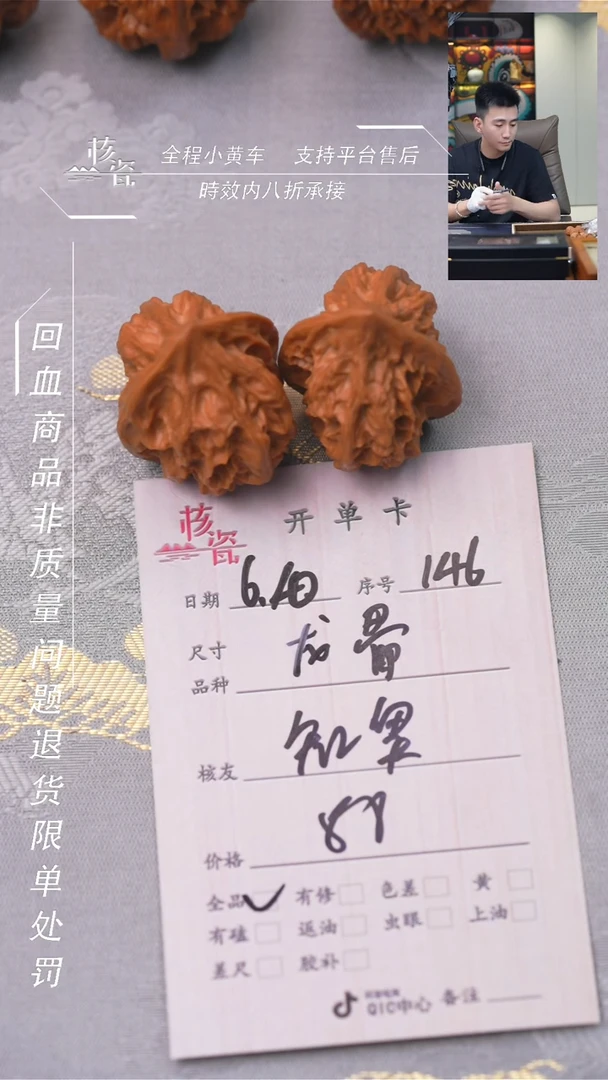 核瓷
全程小黄车 支持平台售后
時效内八折承接
回血商品非质量问题退货限单处罚
核瓷 开单卡
日期 序号 146
尺寸
品种 龙骨
核友
价格
全品 ✓ 有修 色差 黄
有磕 返油 虫眼 上油
差尺 胶补
QIC中心 备注